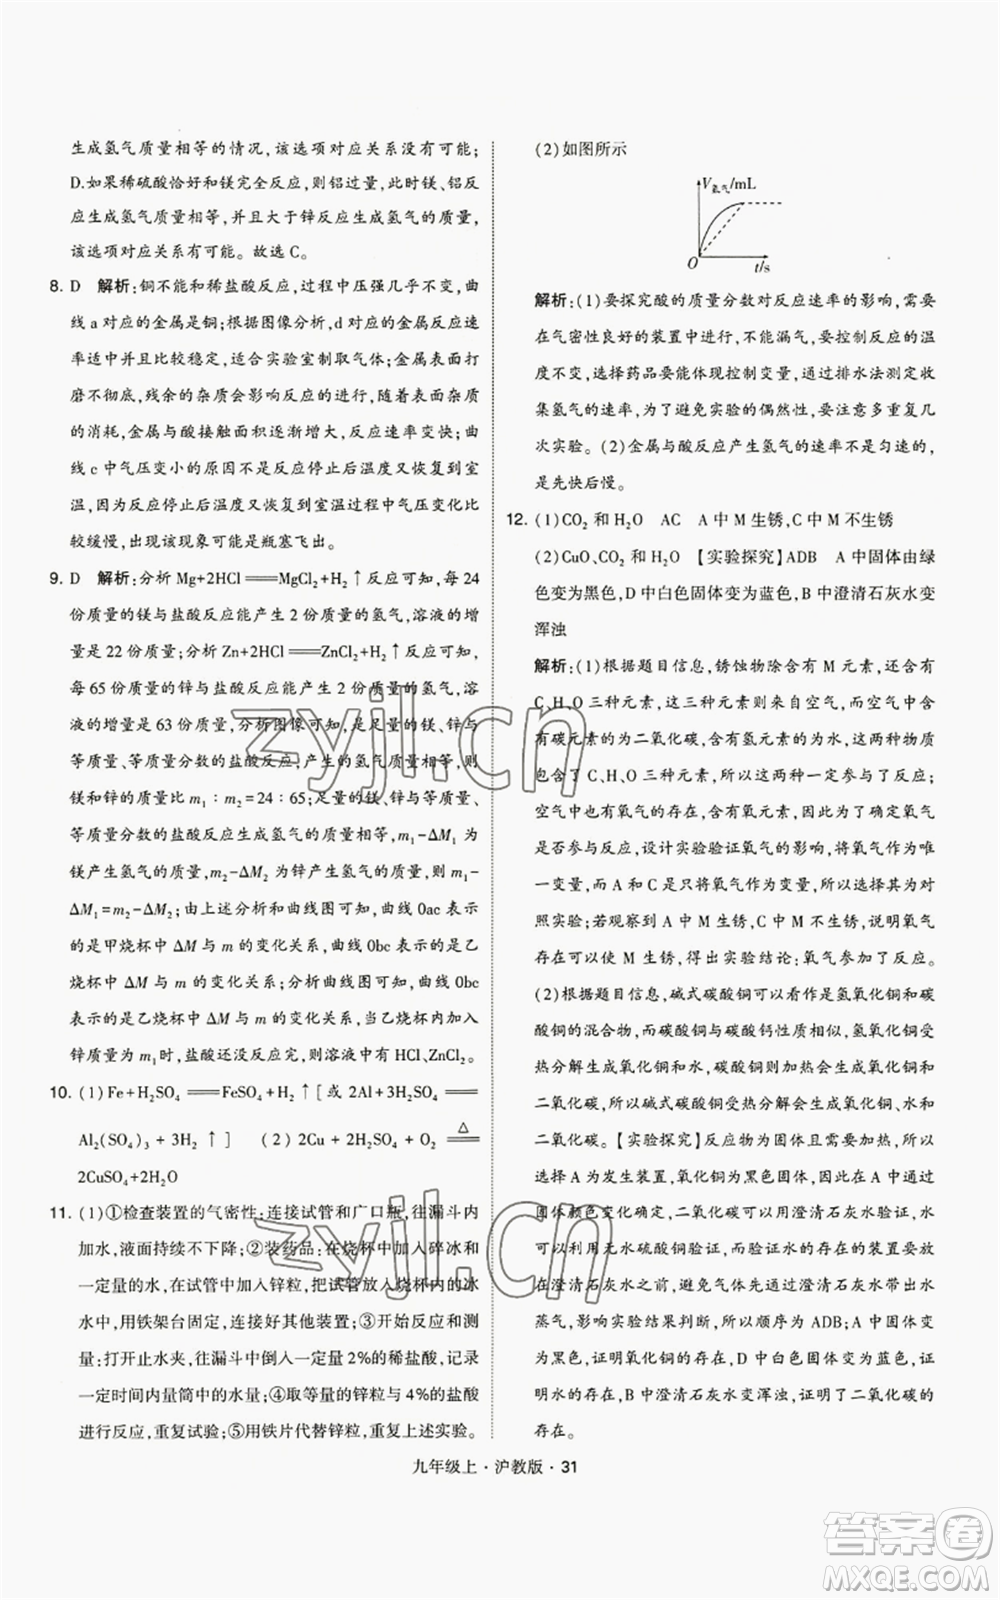 生成氢气质量相等的情况,该选项对应关系有可能;
D.如果稀硫酸恰好和镁完全反应,则铝过量,此时镁、铝反
应生成氢气质量相等,并且大于锌反应生成氢气的质量,
该选项对应关系有可能。故选 C。
8. D 解析:铜不能和稀盐酸反应,过程中压强几乎不变,曲
线 a 对应的金属是铜;根据图像分析,d 对应的金属反应速
率适中并且比较稳定,适合实验室制取气体;金属表面打
磨不彻底,残余的杂质会影响反应的进行,随着表面杂质
的消耗,金属与酸接触面积逐渐增大,反应速率变快;曲
线 c 中气压变小的原因不是反应停止后温度又恢复到室
温,因为反应停止后温度又恢复到室温过程中气压变化比
较缓慢,出现该现象可能是瓶塞飞出。
9. D 解析:分析 Mg+2HCl══MgCl₂+H₂↑反应可知,每 24
份质量的镁与盐酸反应能产生 2 份质量的氢气,溶液的增
量是 22 份质量;分析 Zn+2HCl══ZnCl₂+H₂↑反应可知,
每 65 份质量的锌与盐酸反应能产生 2 份质量的氢气,溶
液的增量是 63 份质量,分析图像可知,是足量的镁、锌与
等质量、等质量分数的盐酸反应,产生的氢气质量相同,则
镁和锌的质量比 m₁∶m₂=24∶65;足量的镁、锌与等质量、
等质量分数的盐酸反应生成氢气的质量相等,m₁-ΔM₁ 为
镁产生氢气的质量,m₂-ΔM₂ 为锌产生氢气的质量,则 m₁-
ΔM₁=m₂-ΔM₂;由上述分析和曲线图可知,曲线 0ac 表示
的是甲烧杯中 ΔM 与 m 的变化关系,曲线 0bc 表示的是乙
烧杯中 ΔM 与 m 的变化关系;分析曲线图可知,曲线 0bc
表示的是乙烧杯中 ΔM 与 m 的变化关系,当乙烧杯内加入
锌质量为 m₁时,盐酸还没反应完,则溶液中有 HCl、ZnCl₂。
10. (1)Fe+H₂SO₄══FeSO₄+H₂↑[或 2Al+3H₂SO₄══
Al₂(SO₄)₃+3H₂↑] (2)2Cu+2H₂SO₄+O₂ ══△
2CuSO₄+2H₂O
11. (1)①检查装置的气密性:连接试管和广口瓶,往漏斗内
加水,液面持续不下降;②装药品:在烧杯中加入碎冰和
一定量的水,在试管中加入锌粒,把试管放入烧杯的冰
水中,用铁架台固定,连接好其他装置;③开始反应和测
量:打开止水夹,往漏斗中倒入一定量 2%的稀盐酸,记录
一定时间内量筒中的水量;④取等量的锌粒与 4%的盐酸
进行反应,重复试验;⑤用铁片代替锌粒,重复上述实验。
(2)如图所示
V氢气/mL
O
t/s
解析:(1)要探究酸的质量分数对反应速率的影响,需要
在气密性良好的装置中进行,不能漏气,要控制反应的温
度不变,选择药品要能体现控制变量,通过排水法测定收
集氢气的速率,为了避免实验的偶然性,要注意多重复几
次实验。(2)金属与酸反应产生氢气的速率不是匀速的,
是先快后慢。
12. (1)CO₂ 和 H₂O AC A 中 M 生锈,C 中 M 不生锈
(2)CuO、CO₂ 和 H₂O 【实验探究】ADB A 中固体由绿
色变为黑色,D 中白色固体变为蓝色,B 中澄清石灰水变
浑浊
解析:(1)根据题目信息,锈蚀物除含有 M 元素,还含有
C、H、O 三种元素,这三种元素应该来自空气,而空气中含
有碳元素的为二氧化碳,含有氢元素的为水,这两种物质
正好包含了 C、H、O 三种元素,所以这两种一定参与了反应;
空气中也有氧气的存在,含有氧元素,所以为了确定氧气
是否参与反应,设计实验验证氧气的作用,让氧气作为唯
一变量,而 A 和 C 是只有氧气一种变量,所以选择 AC 为对
照实验;若观察到 A 中 M 生锈,C 中 M 不生锈,说明氧气
存在可以使 M 生锈,得出实验结论:氧气参加了反应。
(2)根据题目信息,碱式碳酸铜可以看作是氢氧化铜和碳
酸铜的混合物,而碳酸铜与碳酸钙性质相似,氢氧化铜受
热分解生成氧化铜和水,碳酸铜受热分解生成氧化铜和
二氧化碳,所以碱式碳酸铜受热分解生成氧化铜、水和
二氧化碳。【实验探究】反应物为固体且需要加热,所以
选择 A 为发生装置,氧化铜为黑色固体,因此在 A 中通过
固体颜色变化得到验证,二氧化碳可以用澄清石灰水验证,
水可以利用无水硫酸铜验证,而水的存在的验证应该
在澄清石灰水之前,避免气体先通过澄清石灰水带出水
蒸气,影响结果判断,所以顺序为 ADB;A 中固体变为
黑色,证明氧化铜的存在;D 中白色固体变为蓝色,证
明水的存在;B 中澄清石灰水变浑浊,证明了二氧化碳的
存在。
九年级上·沪教版·31
zyjl.cn
zyjl.cn
答案卷
MXQE.COM